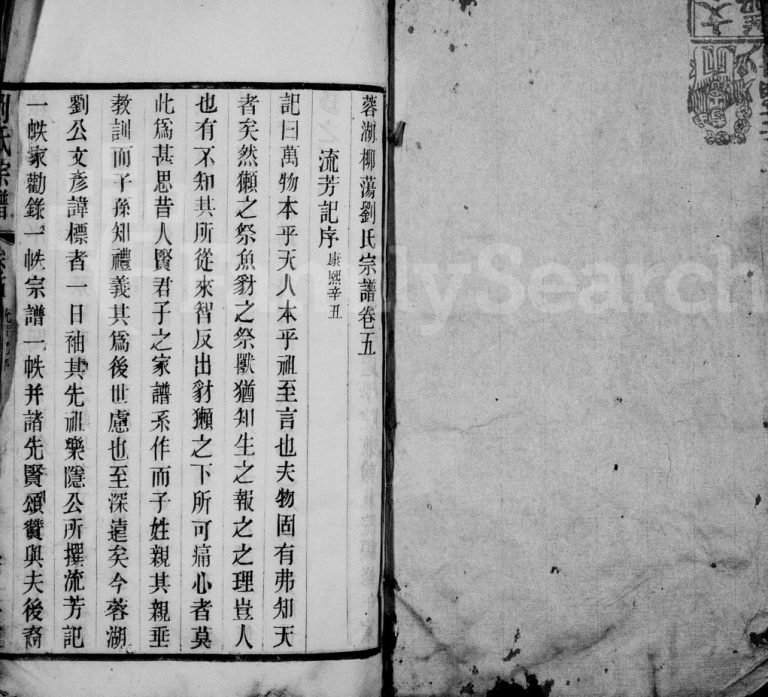 蓉湖柳蕩劉氏宗譜卷五
流芳記序 康熙辛丑
記曰萬物本乎天人本乎祖至言也夫物固有弗知天
者矣然獺之祭魚豺之祭獸猶知生之報之之理豈人
也有不知其所從來智反出豺獺之下所可痛心者莫
此為甚思昔人賢君子之家譜系作而子姓親其親垂
教訓而子孫知禮義其為後世慮也至深遠矣今蓉湖
劉公文彥諱標者一日袖其先祖樂隱公所撰流芳記
一帙家勸錄一帙宗譜一帙并諸先賢頌贊與夫後裔
劉氏宗譜
FamilySearch